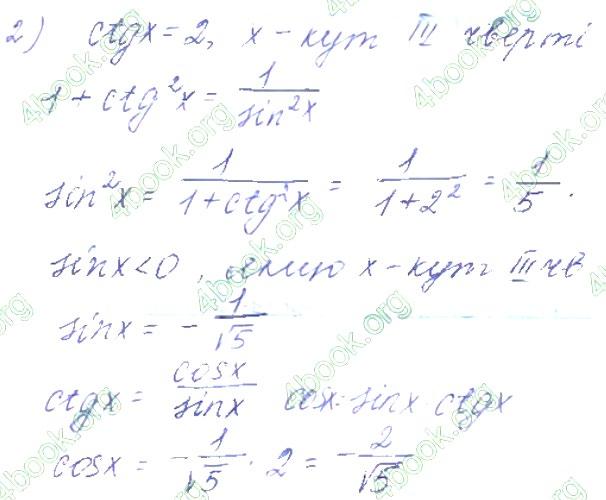 2) ctgx = 2, x - кут III чверті
1 + ctg²x = 1/sin²x
sin²x = 1/(1+ctg²x) = 1/(1+2²) = 1/5.
sinx < 0, якщо x - кут III чв
sinx = - 1/√5
ctgx = cosx/sinx cosx = sinx · ctgx
cosx = - 1/√5 · 2 = - 2/√5
4book.org